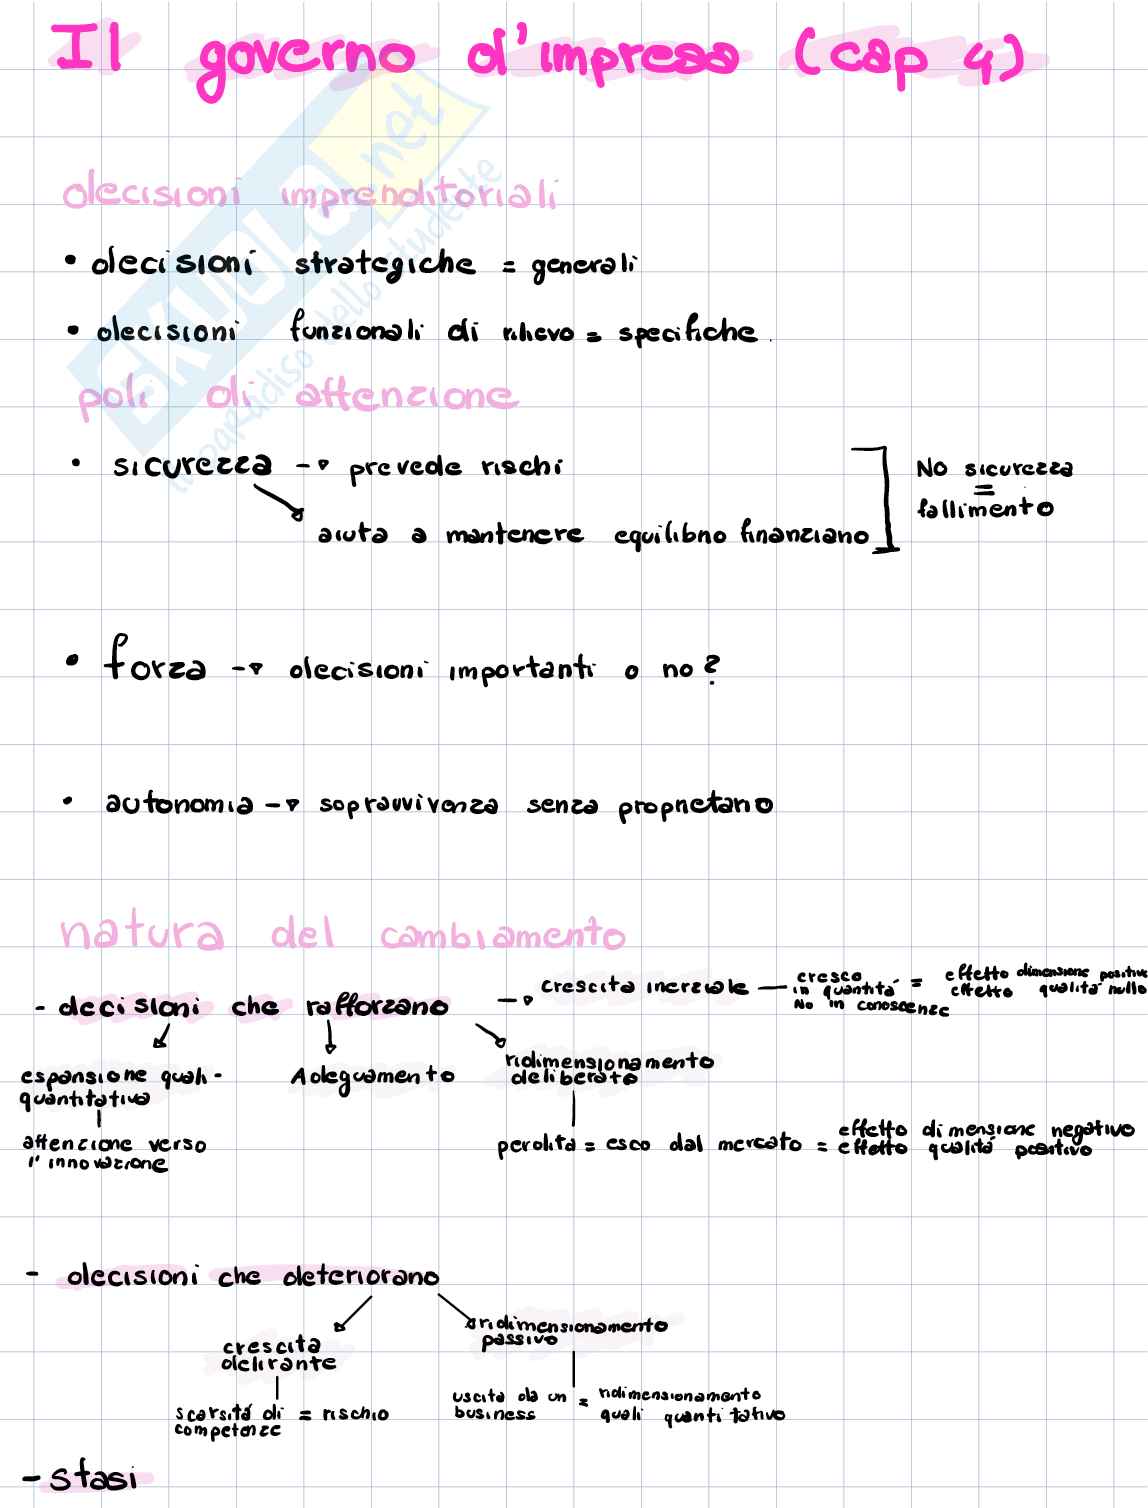 Il governo d'impresa (cap 4)
decisioni imprenditoriali
• decisioni strategiche = generali
• decisioni funzionali di rilievo = specifiche
poli di attenzione
• sicurezza -> prevede rischi
aiuta a mantenere equilibrio finanziario
No sicurezza
=
fallimento
• forza -> decisioni importanti o no?
• autonomia -> sopravvivenza senza proprietario
natura del cambiamento
- decisioni che rafforzano
-> crescita inerziale — cresco in quantità = effetto dimensione positivo
No in conoscenze effetto qualità nullo
espansione quali-
quantitativa
Adeguamento
ridimensionamento
deliberato
attenzione verso
l'innovazione
perdita = esco dal mercato = effetto dimensione negativo
effetto qualità positivo
- decisioni che deteriorano
crescita
delirante
ridimensionamento
passivo
scarsità di = rischio
competenze
uscita da un = ridimensionamento
business quali quantitativo
- stasi
SKUOLA.net
il paradiso dello studente